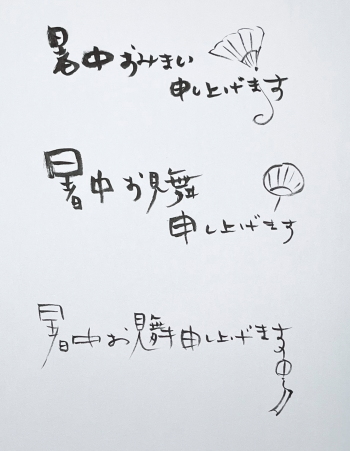 暑中おみまい
申し上げます
暑中お見舞
申し上げます
暑中お見舞申し上げます